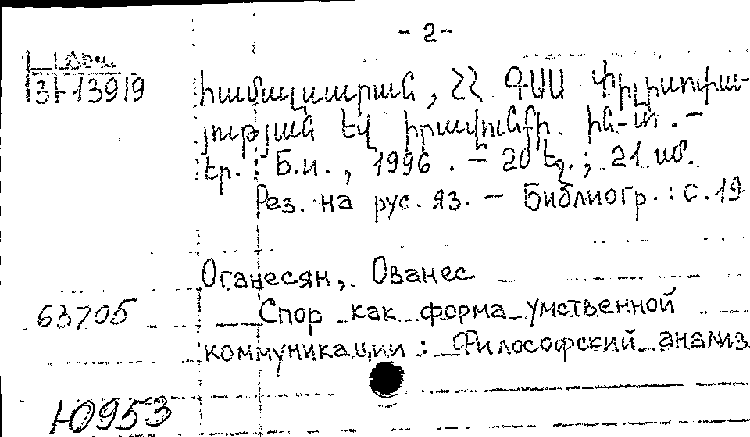 - 2 -
31-13919 համալսարան, ՀՀ ԳԱԱ Փիլիսոփա-
յության եվ իրավունքի ին-տ. -
Եր. : Б.и., 1996. - 20 էջ.; 21 սմ.
Рез. на рус. яз. - Библиогр.: с. 19
Оганесян, Ованес
63705 Спор как форма умственной
коммуникации : Философский анализ
Ю953